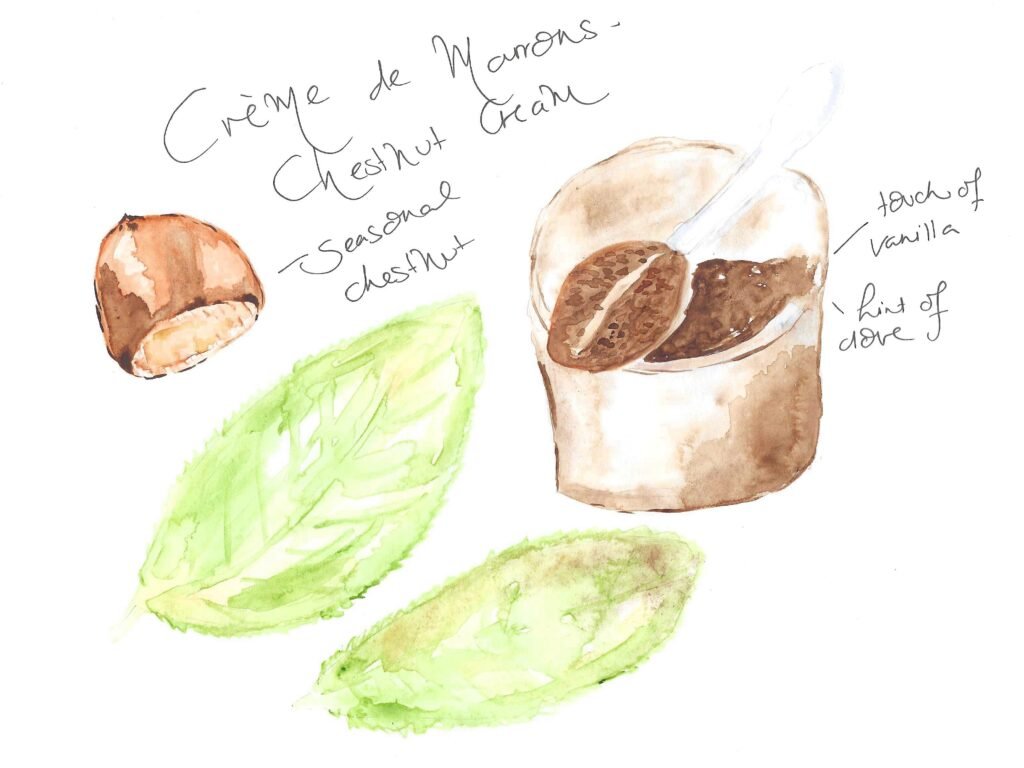 Crème de Marrons -
Chestnut Cream
seasonal
chestnut
touch of
vanilla
hint of
clove